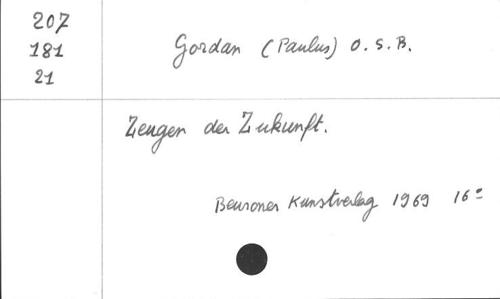 207
181
21
Gordan (Paulus) O.S.B.
Zeugen der Zukunft.
Beuroner Kunstverlag 1969 16°